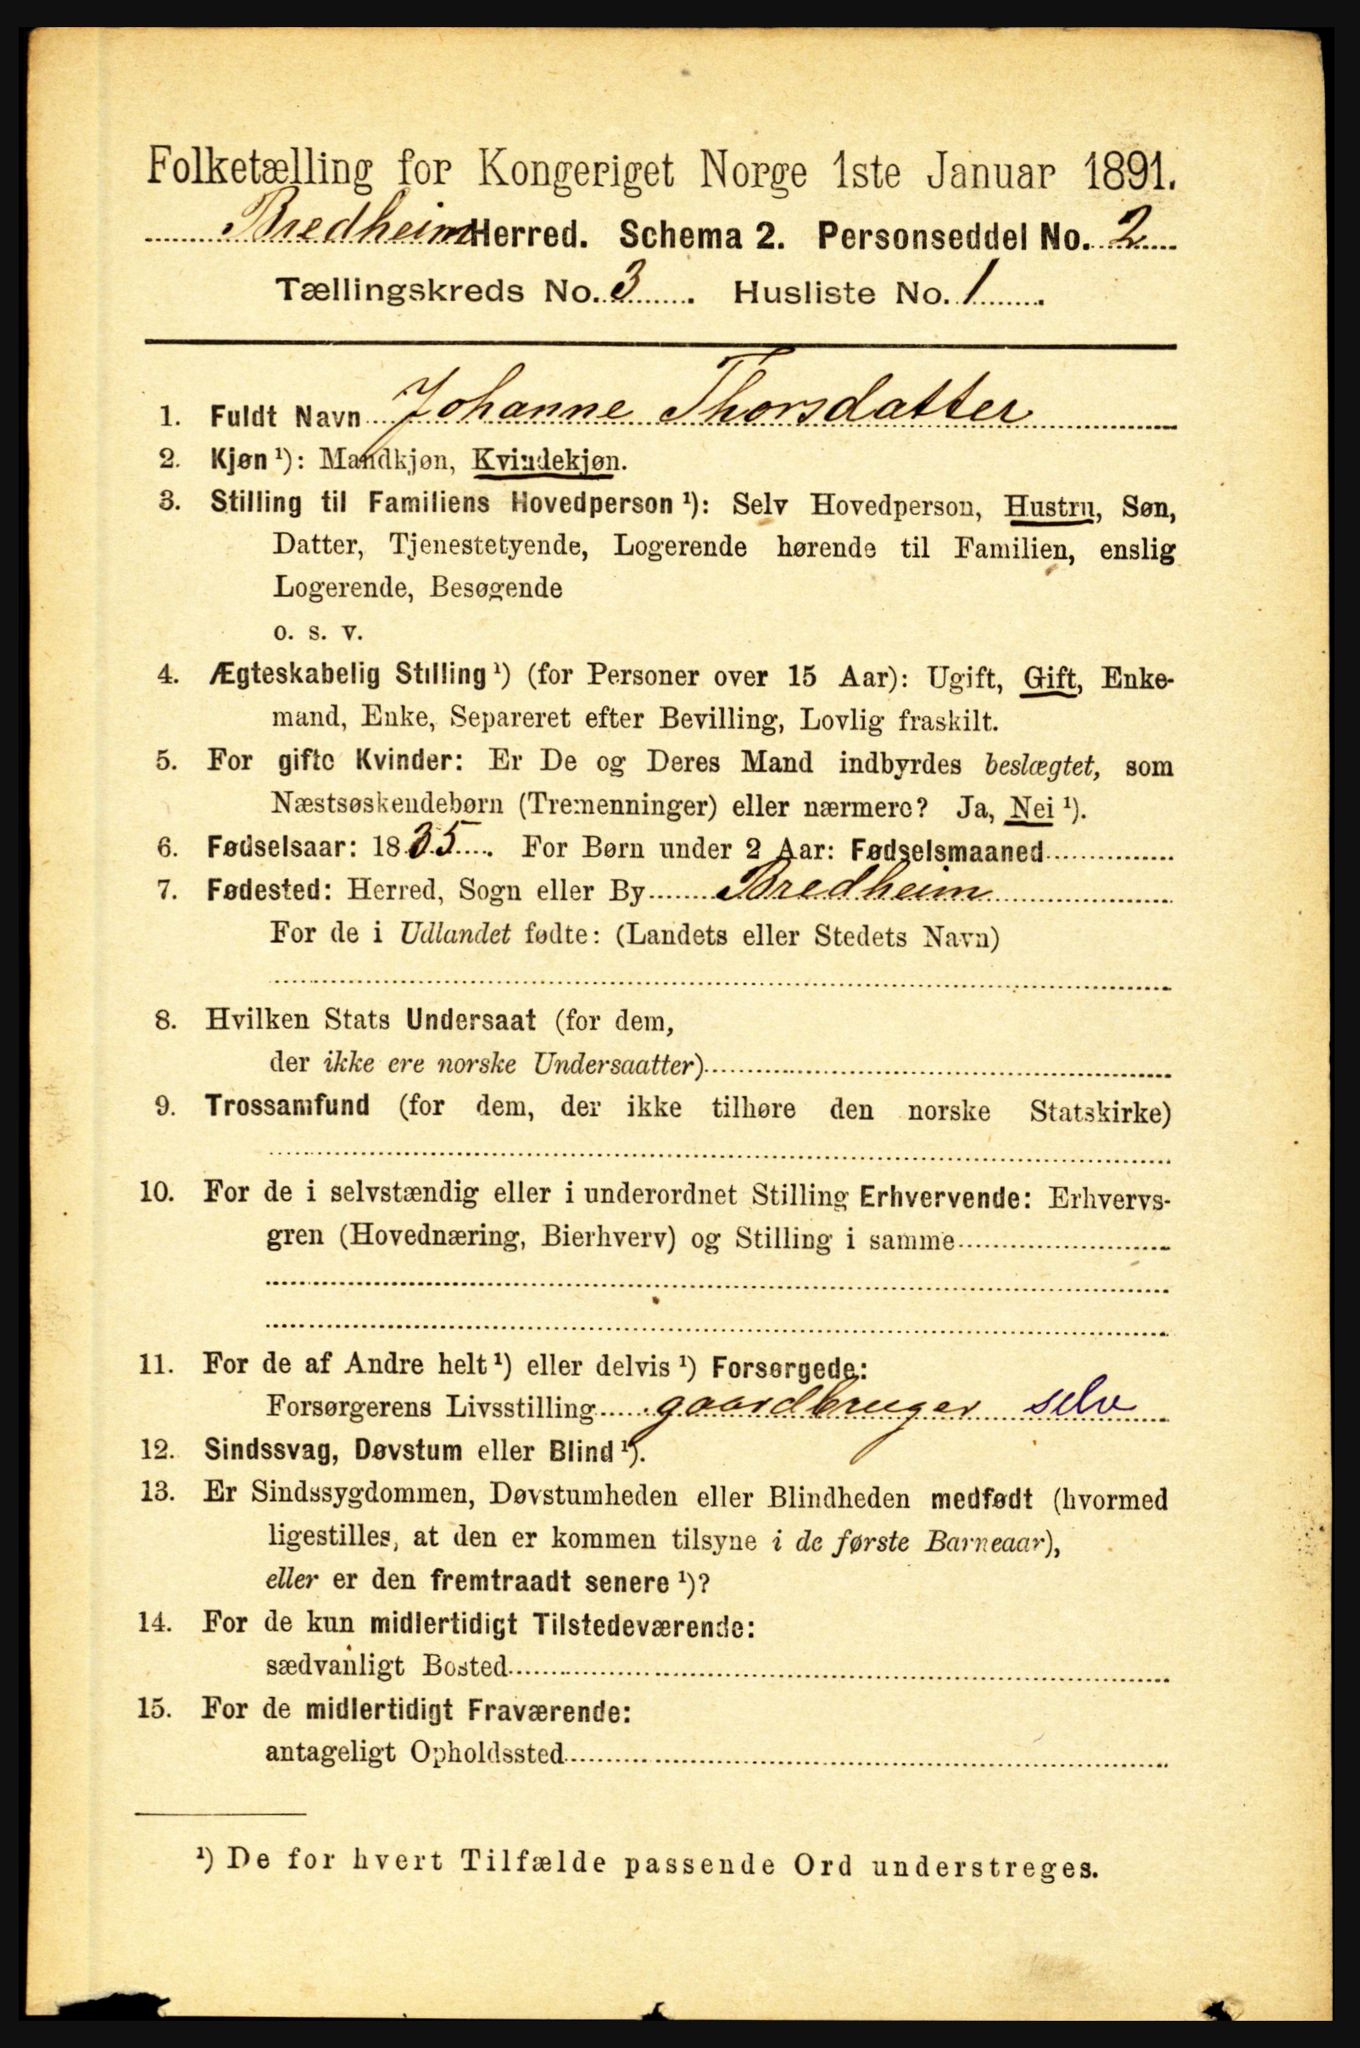 Folketælling for Kongeriget Norge 1ste Januar 1891.
Bredheim Herred. Schema 2. Personseddel No. 2
Tællingskreds No. 3. Husliste No. 1.
1. Fuldt Navn Johanne Thorsdatter
2. Kjøn ¹): Mandkjøn, Kvindekjøn.
3. Stilling til Familiens Hovedperson ¹): Selv Hovedperson, Hustru, Søn,
Datter, Tjenestetyende, Logerende hørende til Familien, enslig
Logerende, Besøgende
o. s. v.
4. Ægteskabelig Stilling ¹) (for Personer over 15 Aar): Ugift, Gift, Enke-
mand, Enke, Separeret efter Bevilling, Lovlig fraskilt.
5. For gifte Kvinder: Er De og Deres Mand indbyrdes beslægtet, som
Næstsøskendebørn (Tremenninger) eller nærmere? Ja, Nei ¹).
6. Fødselsaar: 1835. For Børn under 2 Aar: Fødselsmaaned
7. Fødested: Herred, Sogn eller By Bredheim
For de i Udlandet fødte: (Landets eller Stedets Navn)
8. Hvilken Stats Undersaat (for dem,
der ikke ere norske Undersaatter)
9. Trossamfund (for dem, der ikke tilhøre den norske Statskirke)
10. For de i selvstændig eller i underordnet Stilling Erhvervende: Erhvervs-
gren (Hovednæring, Bierhverv) og Stilling i samme
11. For de af Andre helt ¹) eller delvis ¹) Forsørgede:
Forsørgerens Livsstilling gaardbruger selv
12. Sindssvag, Døvstum eller Blind ¹).
13. Er Sindssygdommen, Døvstumheden eller Blindheden medfødt (hvormed
ligestilles, at den er kommen tilsyne i de første Barneaar),
eller er den fremtraadt senere ¹)?
14. For de kun midlertidigt Tilstedeværende:
sædvanligt Bosted
15. For de midlertidigt Fraværende:
antageligt Opholdssted
¹) De for hvert Tilfælde passende Ord understreges.